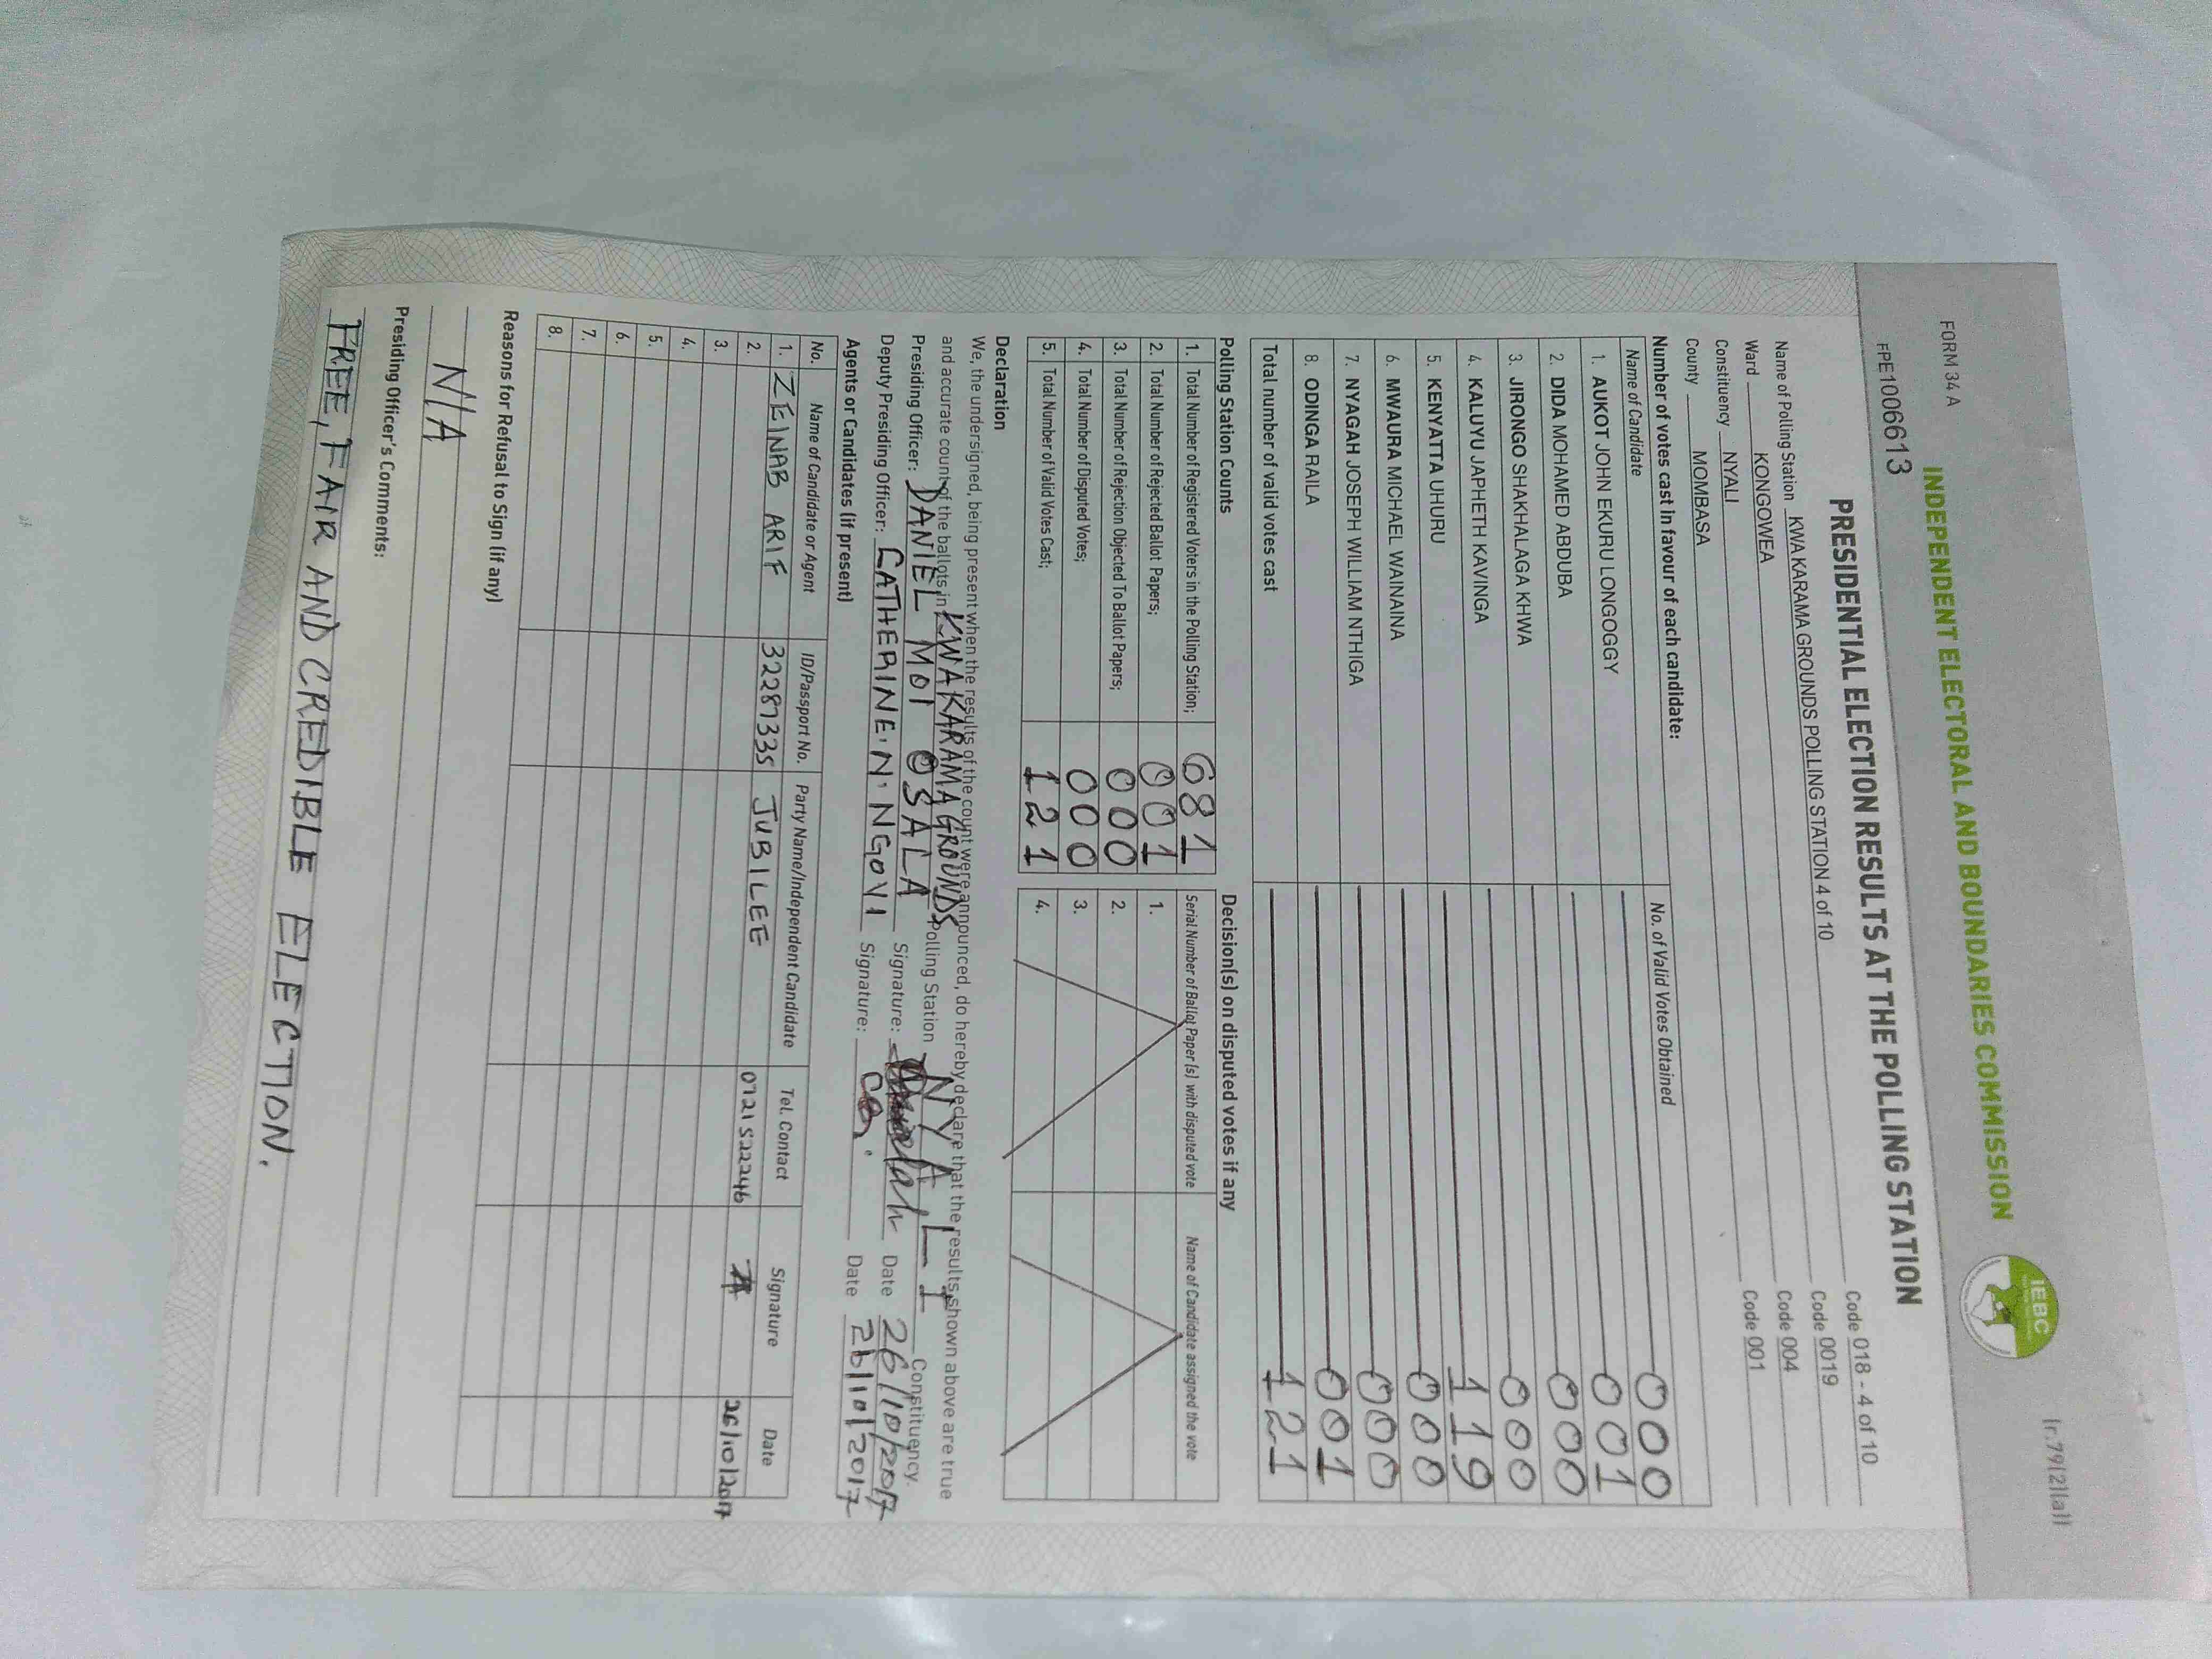 (r.79(2)(a))
FORM 34 A
INDEPENDENT ELECTORAL AND BOUNDARIES COMMISSION
IEBC
FPE1006613
PRESIDENTIAL ELECTION RESULTS AT THE POLLING STATION
Name of Polling Station KWA KARAMA GROUNDS POLLING STATION 4 of 10 Code 018 - 4 of 10
Ward KONGOWEA Code 0019
Constituency NYALI Code 004
County MOMBASA Code 001
Number of votes cast in favour of each candidate:
Name of Candidate No. of Valid Votes Obtained
1. AUKOT JOHN EKURU LONGOGGY 000
2. DIDA MOHAMED ABDUBA 001
3. JIRONGO SHAKHALAGA KHWA 000
4. KALUYU JAPHETH KAVINGA 000
5. KENYATTA UHURU 119
6. MWAURA MICHAEL WAINAINA 000
7. NYAGAH JOSEPH WILLIAM NTHIGA 000
8. ODINGA RAILA 001
Total number of valid votes cast 121
Polling Station Counts Decision(s) on disputed votes if any
1. Total Number of Registered Voters in the Polling Station; 681 Serial Number of Ballot Paper(s) with disputed vote Name of Candidate assigned the vote
2. Total Number of Rejected Ballot Papers; 001 1.
3. Total Number of Rejection Objected To Ballot Papers; 000 2.
4. Total Number of Disputed Votes; 000 3.
5. Total Number of Valid Votes Cast; 121 4.
Declaration
We, the undersigned, being present when the results of the count were announced, do hereby declare that the results shown above are true
and accurate count of the ballots in KWA KARAMA GROUNDS Polling Station NYALI Constituency.
Presiding Officer: DANIEL MOI OSALA Signature: Date 26/10/2017
Deputy Presiding Officer: CATHERINE N. NGOVI Signature: Date 26/10/2017
Agents or Candidates (if present)
No. Name of Candidate or Agent ID/Passport No. Party Name/Independent Candidate Tel. Contact Signature Date
1. ZEINAB ARIF 32287335 JUBILEE 0721522246 26/10/2017
2.
3.
4.
5.
6.
7.
8.
Reasons for Refusal to Sign (if any)
N/A
Presiding Officer's Comments:
FREE, FAIR AND CREDIBLE ELECTION.